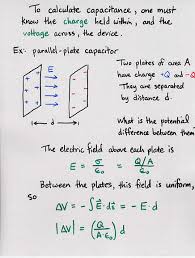 To calculate capacitance, one must
know the charge held within, and the
voltage across, the device.
Ex: parallel-plate capacitor
E
d
Two plates of area A
have charge +Q and -Q
They are separated
by distance d.
What is the potential
difference between them?
The electric field above each plate is
E = σ/ε₀ = Q/A/ε₀
Between the plates, this field is uniform,
so
ΔV = -∫E·ds = -E·d
|ΔV| = (Q/A·ε₀) d